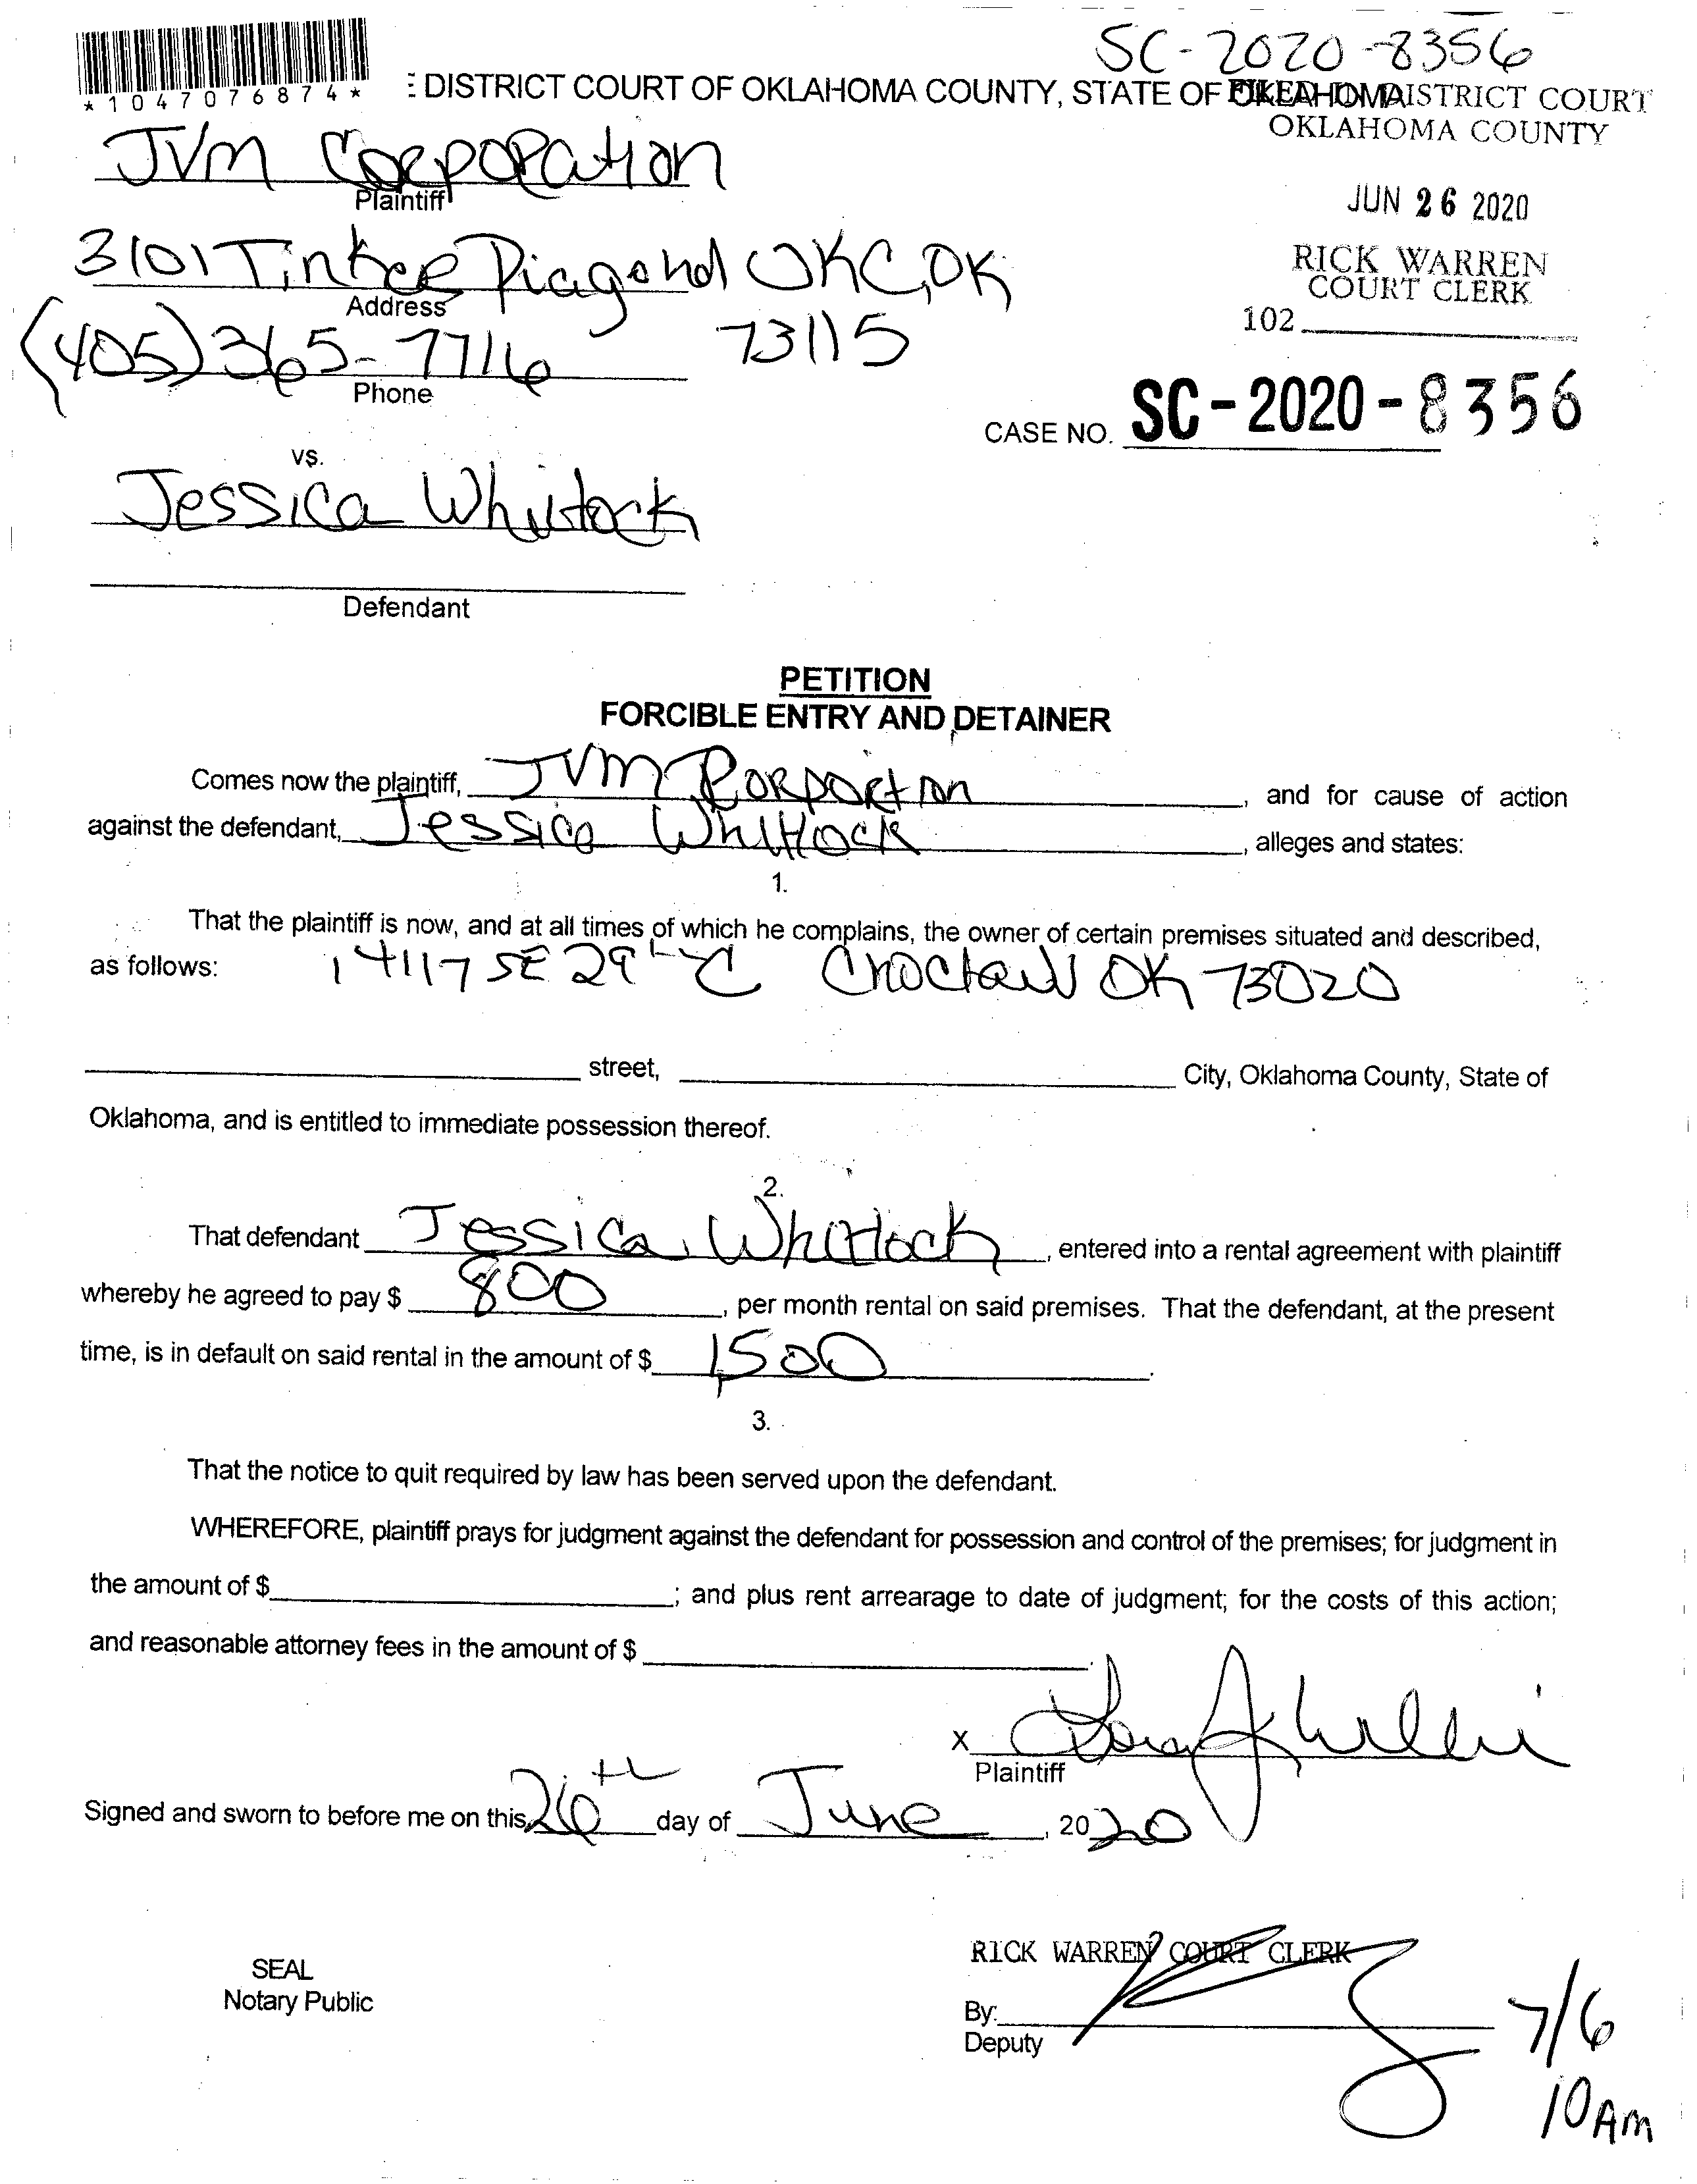 SC-2020-8356
*1047076874*
E DISTRICT COURT OF OKLAHOMA COUNTY, STATE OF OKLAHOMA
FILED IN DISTRICT COURT
OKLAHOMA COUNTY
JVM Corporation
Plaintiff
JUN 26 2020
3101 Tinker Diagonal OKC, OK
Address
73115
RICK WARREN
COURT CLERK
102
(405) 365-7716
Phone
CASE NO. SC-2020-8356
vs.
Jessica Whitlock
Defendant
PETITION
FORCIBLE ENTRY AND DETAINER
Comes now the plaintiff, JVM Corportion, and for cause of action
against the defendant, Jessica Whitlock, alleges and states:
1.
That the plaintiff is now, and at all times of which he complains, the owner of certain premises situated and described,
as follows: 14117 SE 29th C Choctaw OK 73020
street, City, Oklahoma County, State of
Oklahoma, and is entitled to immediate possession thereof.
2.
That defendant Jessica Whitlock, entered into a rental agreement with plaintiff
whereby he agreed to pay $ 800, per month rental on said premises. That the defendant, at the present
time, is in default on said rental in the amount of $ 1,500.
3.
That the notice to quit required by law has been served upon the defendant.
WHEREFORE, plaintiff prays for judgment against the defendant for possession and control of the premises; for judgment in
the amount of $ ; and plus rent arrearage to date of judgment; for the costs of this action;
and reasonable attorney fees in the amount of $ .
X
Plaintiff
Signed and sworn to before me on this 26th day of June, 2020
SEAL
Notary Public
RICK WARREN COURT CLERK
By:
Deputy
7/6
10 Am